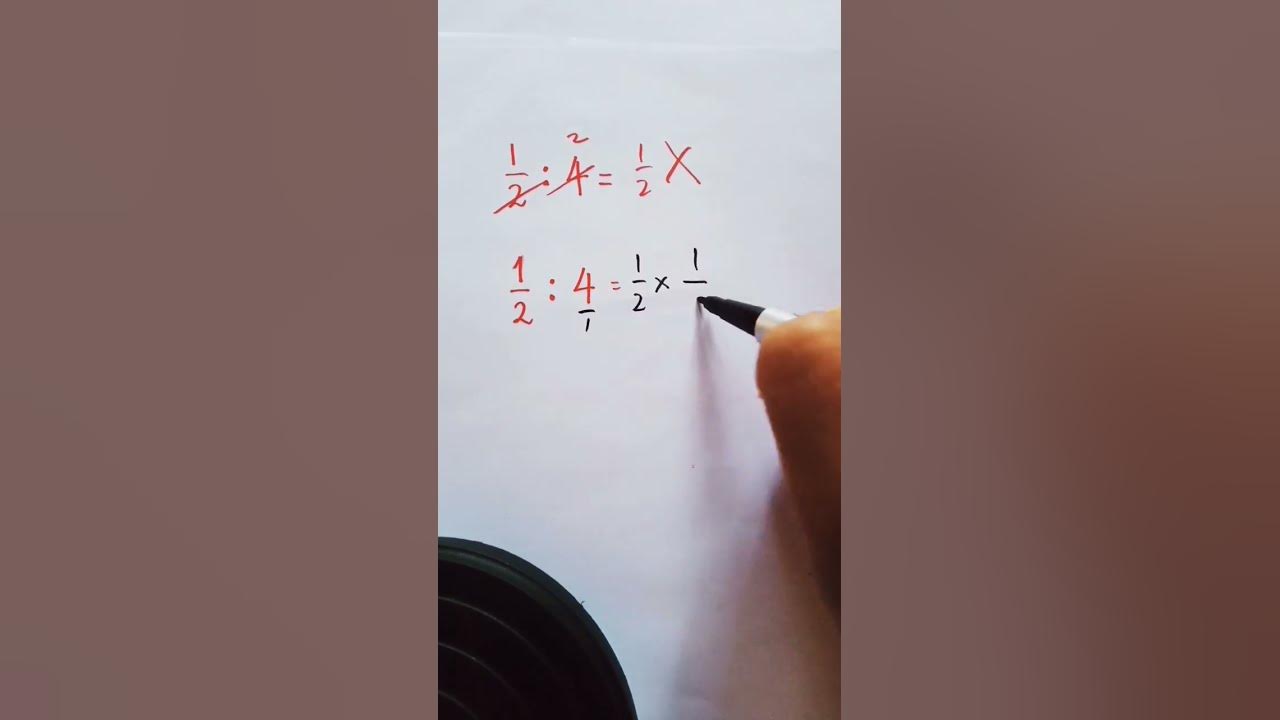 2
1/2 : 4 = 1/2 X
1/2 : 4/1 = 1/2 x 1/